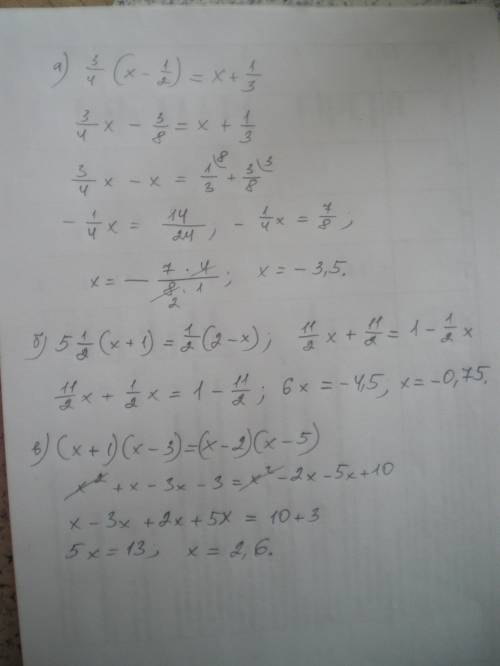 а) 3/4 (x - 1/2) = x + 1/3
3/4 x - 3/8 = x + 1/3
3/4 x - x = 1/3 ⁸ + 3/8 ³
- 1/4 x = 14/24 ; - 1/4 x = 7/8 ;
x = - 7 · 4 / 8 · 1 2 ; x = - 3,5.
б) 5 1/2 (x + 1) = 1/2 (2 - x) ; 11/2 x + 11/2 = 1 - 1/2 x
11/2 x + 1/2 x = 1 - 11/2 ; 6x = -4,5, x = -0,75.
в) (x + 1)(x - 3) = (x - 2)(x - 5)
x² + x - 3x - 3 = x² - 2x - 5x + 10
x - 3x + 2x + 5x = 10 + 3
5x = 13, x = 2,6.